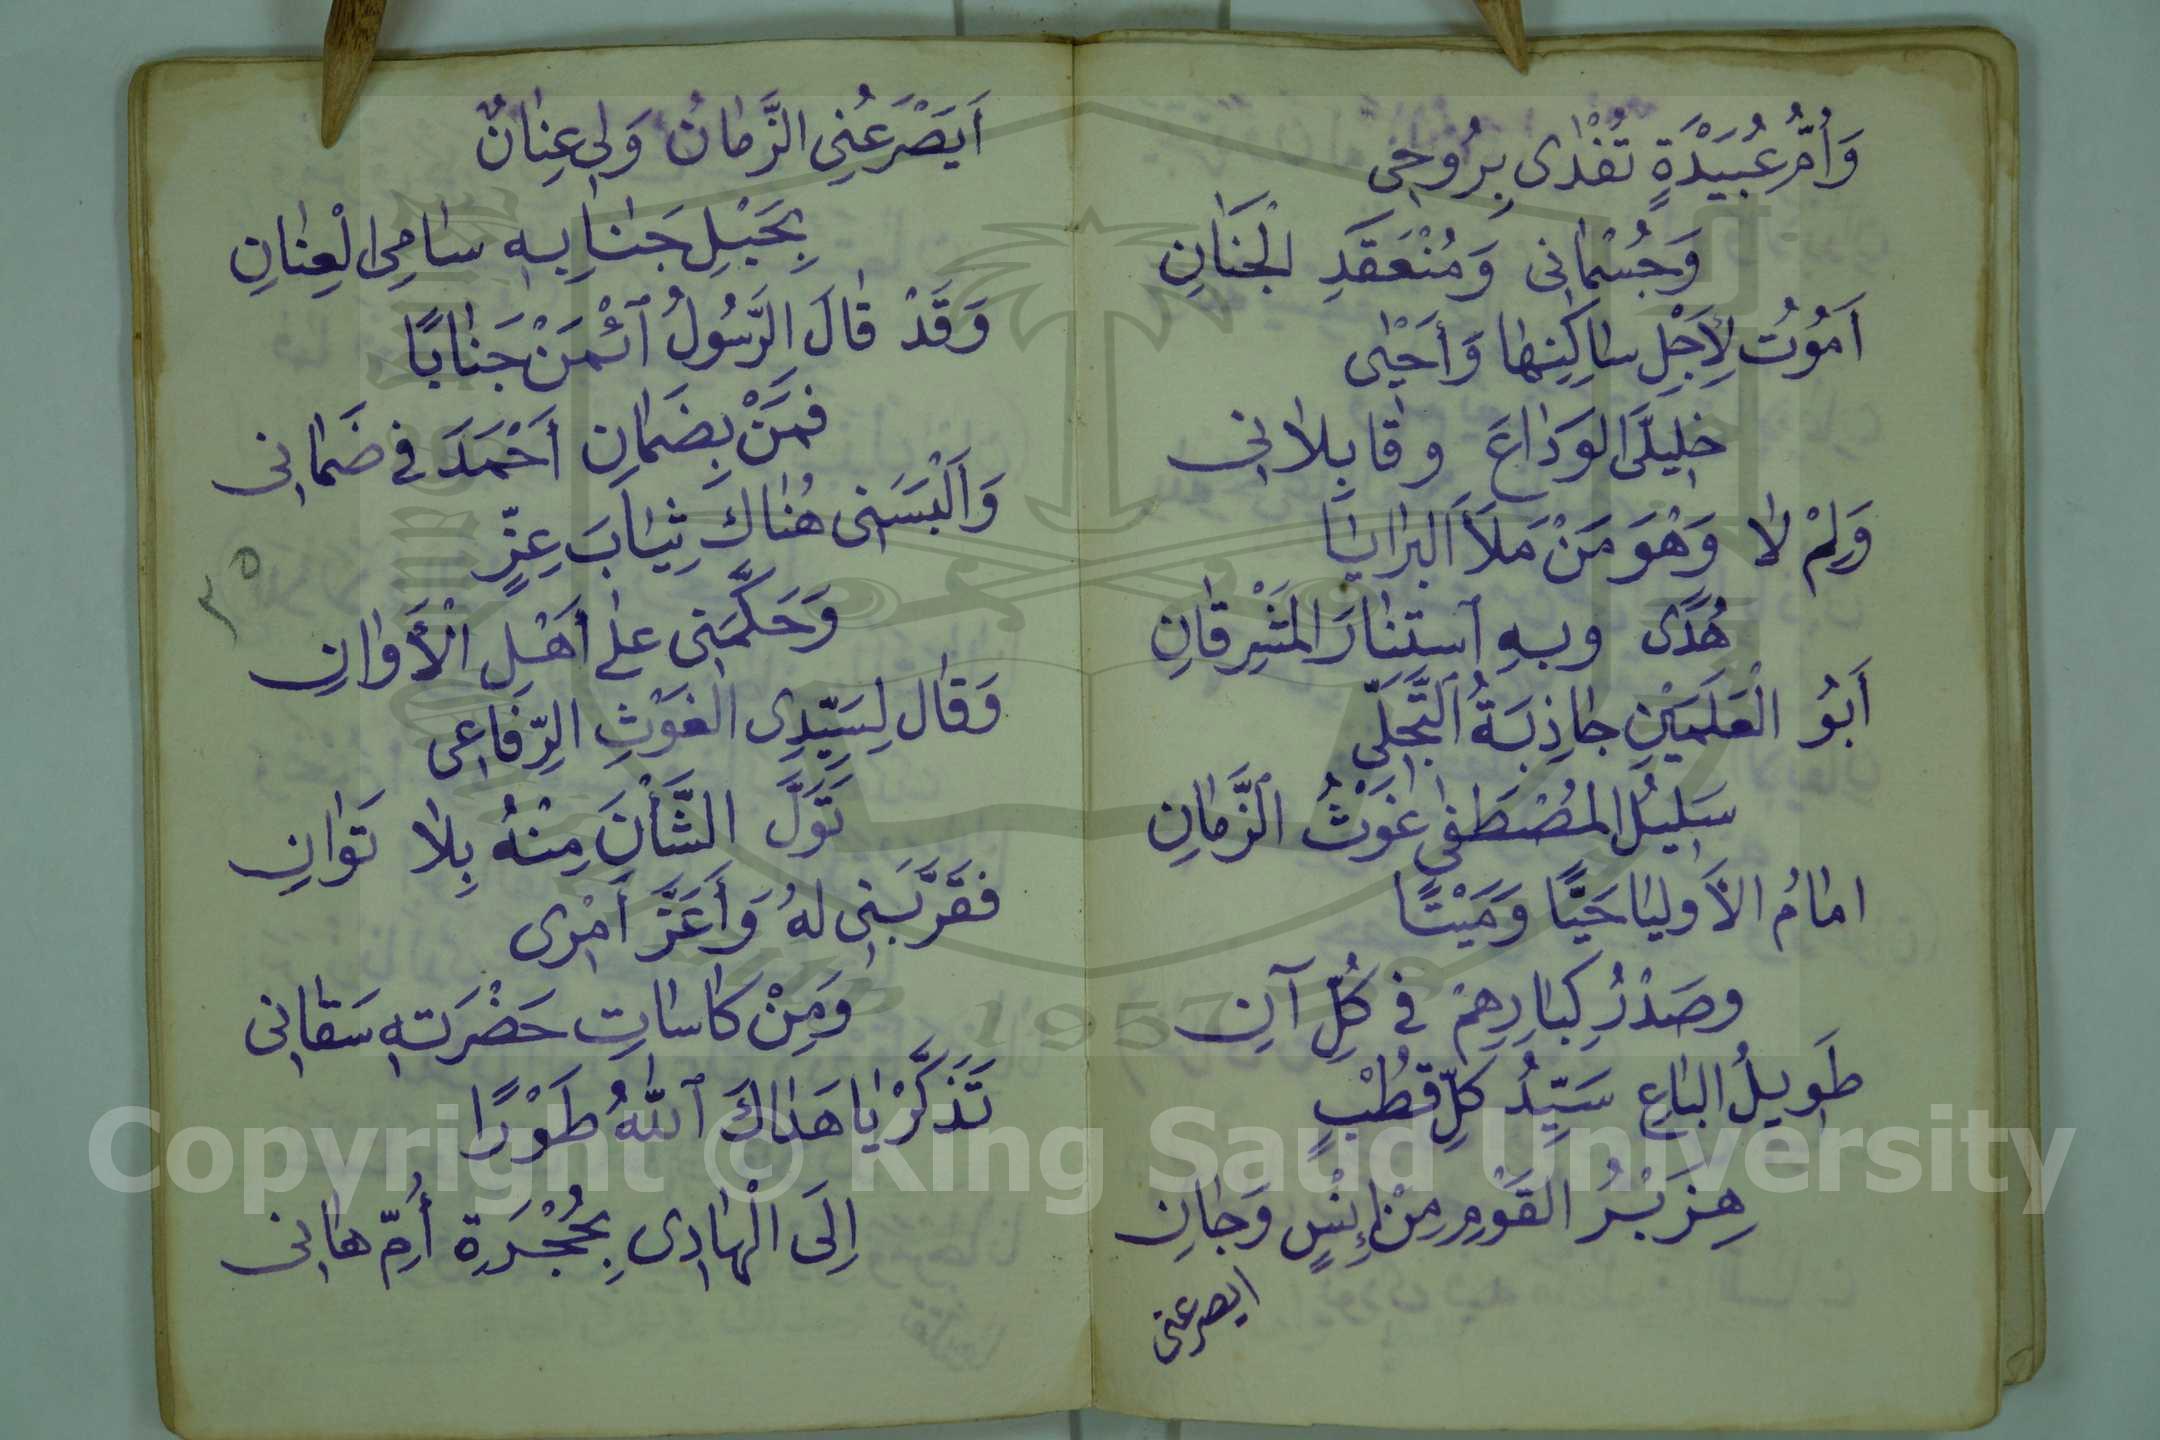 وَأُمُّ عُبَيْدَةٍ تُفْدٰى بِرُوحٖى
وَجُسْمٰانٖى وَمُنْعَقَدِ الْجَنَانِ
اَمُوُتُ لِأَجْلِ سٰاكِنِهٰا وَأَحْيٰى
خٖليلَىَّ الوَدٰاعَ وقٰابِلاٰنٖى
وَلِمْ لاٰ وَهْوَ مَنْ مَلَأَ اَلبَرٰايٰا
هُدًى وبهِ ٱستنٰارَ المَشْرِقٰانِ
أَبُو الْعَلَمَيْنِ جٰاذِبَةُ ٱلتَّجَلّٖى
سَلِيلُ المُصْطَفٰى غَوْثُ ٱلزَّمٰانِ
امٰامُ الاَوليٰا حَيًّا وَمَيْتًا
وصَدْرُ كِبٰارِهِمْ فى كُلِّ آنِ
طَوِيلُ البٰاعِ سَيِّدُ كلِّ قُطْبٍ
هِزَبْرُ القَوْمِ مِنْ إِنْسٍ وَجٰانِ
ايصرعنى
اَيَصْرَعُنِي الزَّمٰانُ وَلٖى عِنٰانٌ
بِحَبْلِ جَنٰابِهٖ سٰامِى الْعِنٰانِ
وَقَدْ قٰالَ الرَّسُولُ ٱئْمَنْ جَنٰابًا
فمَنْ بِضَمٰانِ أَحْمَدَ فى ضَمٰانٖى
وَاَلْبَسَنٖى هُنٰاكَ ثِيٰابَ عِزٍّ
وَحَكَّمَنٖى علٰى أَهْلِ الْأَوٰانِ
وَقٰال لِسَيِّدِى الغَوْثِ الرِّفٰاعٖى
تَوَلَّ الشَّأْنَ مِنْهُ بِلاٰ تَوٰانِ
فقَرَّبَنٖى لهُ وَأَعَزَّ اَمْرٖى
ومَنْ كٰاسٰاتِ حَضْرَتهٖ سَقٰانٖى
تَذَكَّرْ يٰا هَدٰاكَ ٱللّٰهُ طَوْرًا
اِلَى الْهٰادٖى بِحُجْرَةِ أُمِّ هٰانٖى
٣٥
1957
Copyright © King Saud University